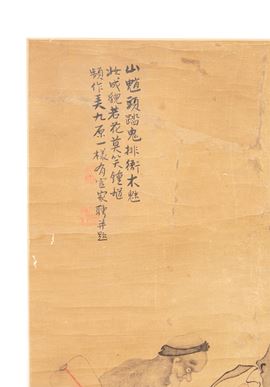 山魈頭踏鬼排衙木魅
妝成貌若花莫笑鍾馗
頻作美九原一樣有宜家聊并題